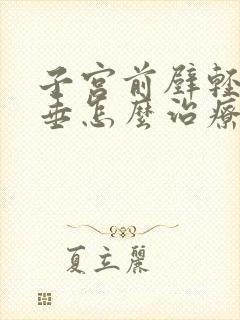 子宫前壁轻
垂怎麽治療
夏立麗